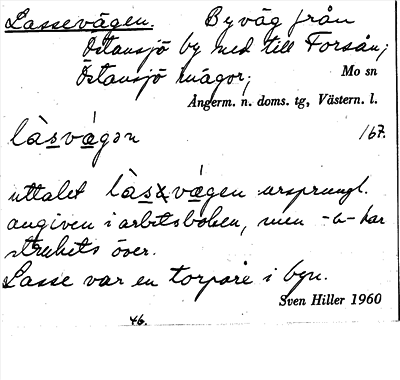 Lassevägen. Byväg från
Östansjö by ned till Forsån;
Östansjö mågor;
Mo sn
Ångerm. n. doms. tg, Västern. l.
làsvá̀gən
167.
uttalet làsəvägen ursprungl.
angiven i arbetsboken, men -ə- har
strukits över.
Lasse var en torpare i byn.
Sven Hiller 1960
46.